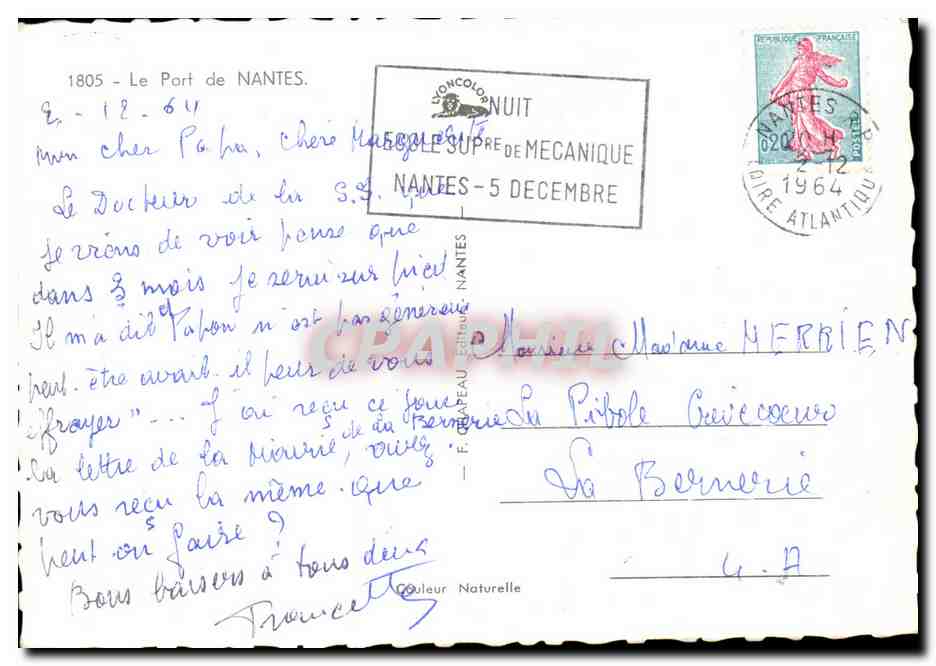 1805 - Le Port de NANTES.
2 - 12 - 64
Mon cher Papa, Chère Marguerite
Le Docteur de la S.S. que
je viens de voir pense que
dans 3 mois je serai sur pied
Il m'a dit "Papon n'est pas généreux
peut-être avait-il peur de vous
effrayer" ... J'ai reçu ce jour
la lettre de la Mairie de La Bernerie,
vous reçu la même. Que
peut on faire ?
Bons baisers à tous deux
LYONCOLOR
NUIT
ECOLE SUPre DE MECANIQUE
NANTES - 5 DECEMBRE
REPUBLIQUE FRANÇAISE
0,20
POSTES
NANTES R.P.
20 H
2-12
1964
LOIRE ATLANTIQUE
F. CHAPEAU Editeur NANTES
CPAPHIL
Monsieur Madame HERRIEN
La Pibole Crèvecoeur
La Bernerie
L. A
Couleur Naturelle